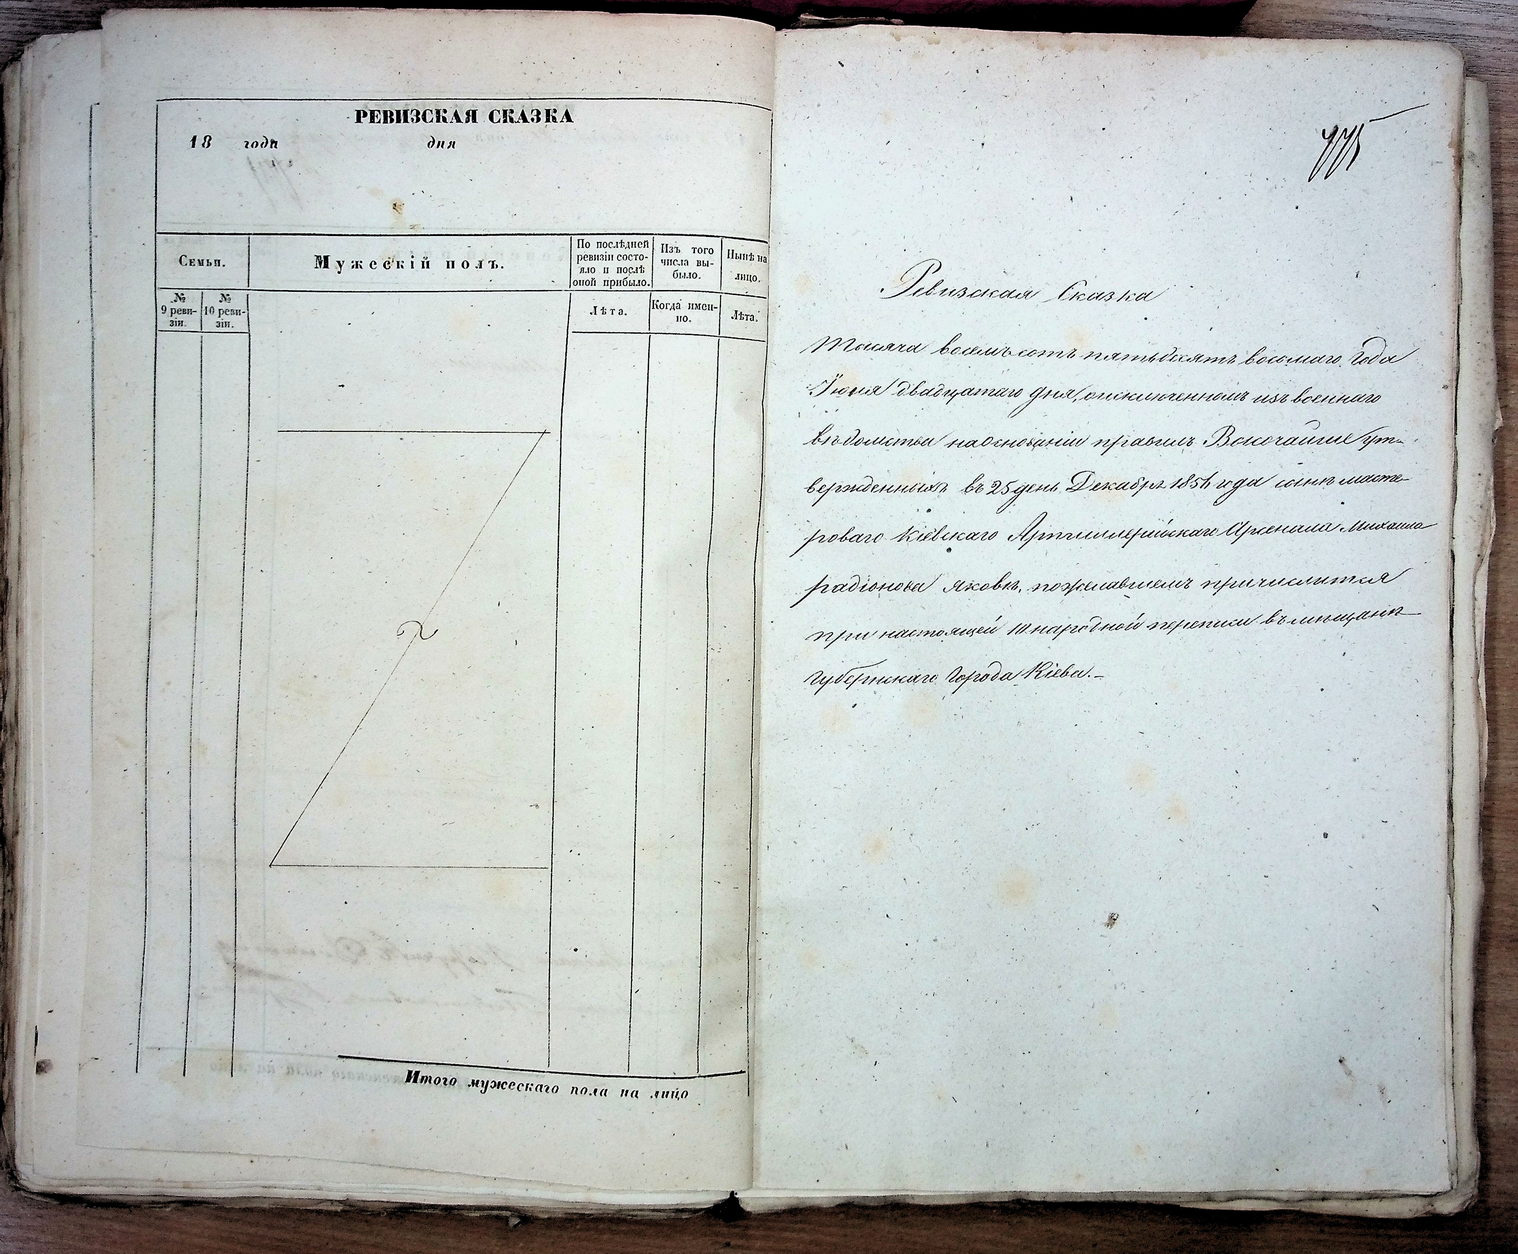 РЕВИЗСКАЯ СКАЗКА
18 года дня
Семьи.
Мужескій полъ.
По послѣдней
ревизіи состо-
яло и послѣ
оной прибыло.
Изъ того
числа вы-
было.
Нынѣ на
лицо.
№
9 реви-
зіи.
№
10 реви-
зіи.
Лѣта.
Когда имен-
но.
Лѣта.
Итого мужескаго пола на лицо
775
Ревизская Сказка
Тысяча восемьсотъ пятьдесятъ восьмаго Года
Іюня двадцатаго дня, о исключенномъ изъ военнаго
вѣдомства на основаніи правилъ Высочайше ут-
вержденныхъ въ 25 день Декабря 1856 года сынѣ масте-
роваго Кіевскаго Артиллерійскаго Арсенала Михаила
Радіонова Яковѣ, пожелавшемъ причислится
при настоящей 10 народной переписи въ мѣщане
Губернскаго Города Кіева.–